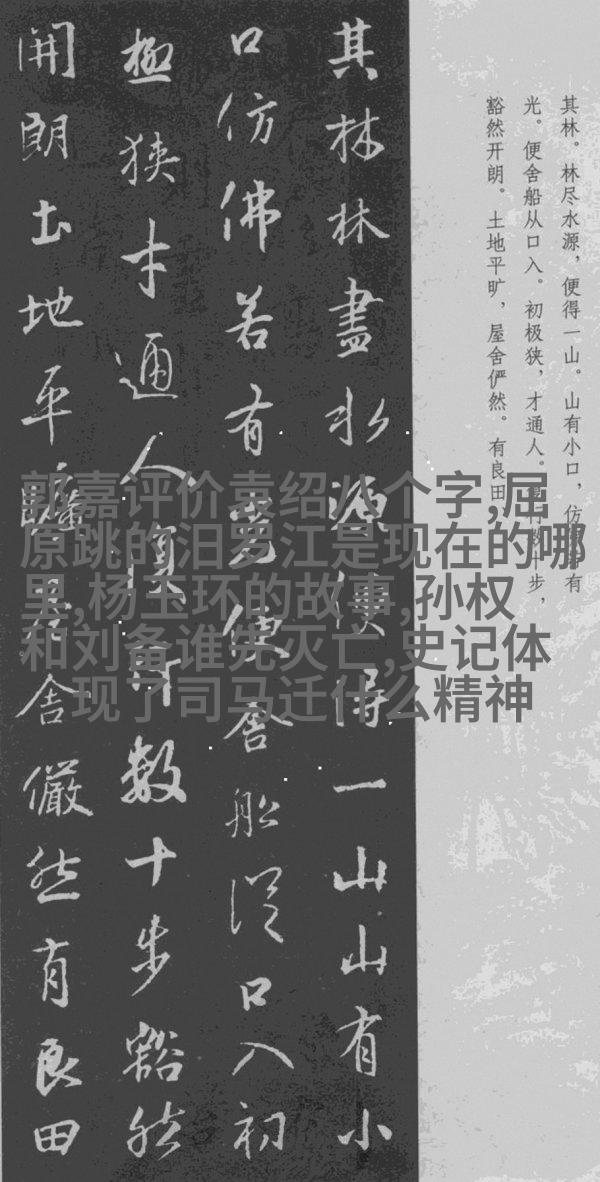 其林。林尽水源，便得一山。山有小口，仿佛若有
光。便舍船从口入。初极狭，才通人。复行数十步，
豁然开朗。土地平旷，屋舍俨然。有良田
其林林盡水源便得一山山有小
口仿佛若有光便舍船從口入初
極狭才通人復行数十步豁然
開朗土地平曠屋舍儼然有良田
郭嘉评价袁绍八个字,屈
原跳的汨罗江是现在的哪
里,杨玉环的故事,孙权
和刘备谁先灭亡,史记体
现了司马迁什么精神